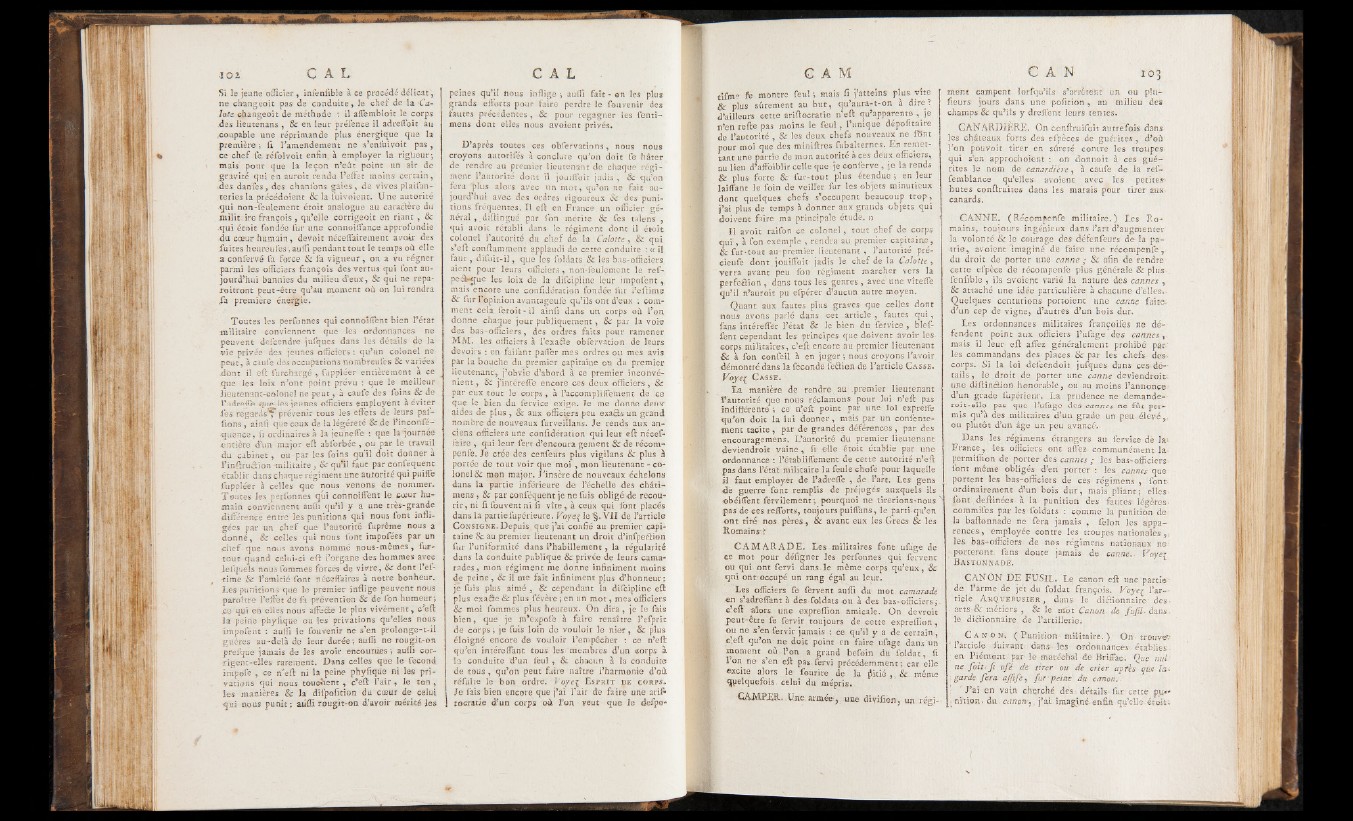 102 C A L
Si le jeune officier, insensible à ce procédé délicat,
ne changeoit pas de conduite, le chef de la Ca-
lote changeoit de méthode : il assembloit le corps
des lieutenans, & en leur présence il adressoit au
coupable une réprimande plus énergique que la
première ; si l'amendement ne s'ensuivoit pas,
ce chef se résolvoit enfin à employer la rigueur ;
mais pour que la leçon n'eût point un air de
gravité qui en auroit rendu l'effet moins certain,
des danses, des chansons gaies, de vives plaisan-
teries la précédoient & la suivoient. Une autorité
qui non-seulement étoit analogue au caractère du
militaire françois, qu'elle corrigeoit en riant, &
qui étoit fondée sur une connoissance approfondie
du cœur humain, devoit nécessairement avoir des
suites heureuses, aussi pendant tout le temps où elle
a conservé sa force & sa vigueur, on a vu régner
parmi les officiers françois des vertus qui sont au-
jourd'hui bannies du milieu d'eux, & qui ne repa-
roîtront peut-être qu'au moment où on lui rendra
sa première énergie.
Toutes les personnes qui connoissent bien l'état
militaire conviennent que les ordonnances ne
peuvent descendre jusques dans les détails de la
vie privée des jeunes officiers ; qu'un colonel ne
peut, à cause des occupations nombreuses & variées
dont il est surchargé, suppléer entièrement à ce
que les loix n'ont point prévu : que le meilleur
lieutenant-colonel ne peut, à cause des soins & de
l'adresse que les jeunes officiers employent à éviter
ses regards prévenir tous les effets de leurs pas-
sions, ainsi que ceux de la légéreté & de l'inconsé-
quence, si ordinaires à la jeunesse : que la journée
entière d'un major est absorbée, ou par le travail
du cabinet, ou par les soins qu'il doit donner à
l'instruction militaire, & qu'il faut par conséquent
établir dans chaque régiment une autorité qui puisse
suppléer à celles que nous venons de nommer.
Toutes les personnes qui connoissent le cœur hu-
main conviennent aussi qu'il y a une très-grande
différence entre les punitions qui nous sont infli-
gées par un chef que l'autorité suprême nous a
donné, & celles qui nous sont imposées par un
chef que nous avons nommé nous-mêmes, sur-
tout quand celui-ci est l'organe des hommes avec
lesquels nous sommes forcés de vivre, & dont l'es-
time & l'amitié sont nécessaires à notre bonheur.
Les punitions que le premier inflige peuvent nous
paroître l'effet de sa prévention & de son humeur ;
ce qui en elles nous affecte le plus vivement, c'est
la peine physique ou les privations qu'elles nous
imposent : aussi le souvenir ne s'en prolonge-t-il
guères au-delà de leur durée ; aussi ne rougit-on
presque jamais de les avoir encourues ; aussi cor-
rigent-elles rarement. Dans celles que le second
impose, ce n'est ni la peine physique ni les pri-
vations qui nous touchent, c'est l'air, le ton,
les manières & la disposition du cœur de celui
qui nous punit ; aussi rougit-on d'avoir mérité les
C A L
peines qu'il nous inflige ; aussi fait-on les plus
grands efforts pour faire perdre le souvenir des
fautes précédentes, & pour regagner les senti-
mens dont elles nous avoient privés.
D'après toutes ces observations, nous nous
croyons autorisés à conclure qu'on doit se hâter
de rendre au premier lieutenant de chaque régi-
ment l'autorité dont il jouissoit jadis, & qu'on
fera plus alors avec un mot, qu'on ne fait au-
jourd'hui avec des ordres rigoureux & des puni-
tions fréquentes. Il est en France un officier gé-
néral, distingué par son mérite & ses talens,
qui avoit rétabli dans le régiment dont il étoit
colonel l'autorité du chef de la Calotte, & qui
s'est constamment applaudi de cette conduite : « il
faut, disoit-il, que les soldats & les bas-officiers
aient pour leurs officiers, non-seulement le res-
pect que les loix de la discipline leur imposent,
mais encore une considération fondée sur l'estime
& sur l'opinion avantageuse qu'ils ont d'eux : com-
ment cela seroit-il ainsi dans un corps où l'on
donne chaque jour publiquement, & par la voie
des bas-officiers, des ordres faits pour ramener
MM. les officiers à l'exacte observation de leurs
devoirs : en faisant passer mes ordres ou mes avis
par la bouche du premier capitaine ou du premier
lieutenant, j'obvie d'abord à ce premier inconvé-
nient, & j'intéresse encore ces deux officiers, &
par eux tout le corps, à l'accomplissement de ce
que le bien du service exige. Je me donne deux
aides de plus, & aux officiers peu exacts un grand
nombre de nouveaux surveillans. Je rends aux an-
ciens officiers une considération qui leur est néces-
saire, qui leur sert d'encouragement & de récom-
pense. Je crée des censeurs plus vigilans & plus à
portée de tout voir que moi, mon lieutenant-co-
lonel & mon major. J'insère de nouveaux échelons
dans la partie inférieure de l'échelle des châti-
mens, & par conséquent je ne suis obligé de recou-
rir, ni si souvent ni si vîte, à ceux qui sont placés
dans la partie supérieure. Voyez le §. VII de l'article
CONSIGNE. Depuis que j'ai confié au premier capi-
taine & au premier lieutenant un droit d'inspection
sur l'uniformité dans l'habillement, la régularité
dans la conduite publique & privée de leurs cama-
rades, mon régiment me donne infiniment moins
de peine, & il me fait infiniment plus d'honneur :
je suis plus aimé, & cependant la discipline est
plus exacte & plus sévère ; en un mot, mes officiers
& moi sommes plus heureux. On dira, je le sais
bien, que je m'expose à faire renaître l'esprit
de corps ; je suis loin de vouloir le nier, & plus
éloigné encore de vouloir l'empêcher : ce n'est
qu'en intéressant tous les membres d'un corps à
la conduite d'un seul, & chacun à la conduite
de tous, qu'on peut faire naître l'harmonie d'où
résulte le bon ordre. Voyez ESPRIT DE CORPS.
Je sais bien encore que j'ai l'air de faire une aris-
tocratie d'un corps où l'on veut que le despo-
C A M
tisme se montre seul ; mais si j'atteins plus vîte
& plus sûrement au but, qu'aura-t-on à dire ?
d'ailleurs cette aristocratie n'est qu'apparente, je
n'en reste pas moins le seul, l'unique dépositaire
de l'autorité, & les deux chefs nouveaux ne sont
pour moi que des ministres subalternes. En remet-
tant une partie de mon autorité à ces deux officiers,
au lieu d'affoiblir celle que je conserve, je la rends
& plus forte & sur-tout plus étendue ; en leur
laissant le soin de veiller sur les objets minutieux
dont quelques chefs s'occupent beaucoup trop,
j'ai plus de temps à donner aux grands objets qui
doivent faire ma principale étude. »
Il avoit raison ce colonel, tout chef de corps
qui, à son exemple, rendra au premier capitaine,
& sur-tout au premier lieutenant, l'autorité pré-
cieuse dont jouissoit jadis le chef de la Calotte,
verra avant peu son régiment marcher vers la
perfection, dans tous les genres, avec une vîtesse
qu'il n'auroit pu espérer d'aucun autre moyen.
Quant aux fautes plus graves que celles dont
nous avons parlé dans cet article, fautes qui,
sans intéresser l'état & le bien du service, bles-
sent cependant les principes que doivent avoir les
corps militaires, c'est encore au premier lieutenant
& à son conseil à en juger ; nous croyons l'avoir
démontré dans la seconde section de l'article CASSE.
Voyez CASSE.
La manière de rendre au premier lieutenant
l'autorité que nous réclamons pour lui n'est pas
indifférente ; ce n'est point par une loi expresse
qu'on doit la lui donner, mais par un consente-
ment tacite, par de grandes déférences, par des
encouragemens. L'autorité du premier lieutenant
deviendroit vaine, si elle étoit établie par une
ordonnance : l'établissement de cette autorité n'est
pas dans l'état militaire la seule chose pour laquelle
il faut employer de l'adresse, de l'art. Les gens
de guerre sont remplis de préjugés auxquels ils
obéissent servilement ; pourquoi ne tirerions-nous
pas de ces ressorts, toujours puissans, le parti qu'en
ont tiré nos pères, & avant eux les Grecs & les
Romains ?
CAMARADE. Les militaires font usage de
ce mot pour désigner les personnes qui servent
ou qui ont servi dans le même corps qu'eux, &
qui ont occupé un rang égal au leur.
Les officiers se servent aussi du mot camarade
en s'adressant à des soldats ou à des bas-officiers,
c'est alors une expression amicale. On devroit
peut-être se servir toujours de cette expression,
ou ne s'en servir jamais : ce qu'il y a de certain,
c'est qu'on ne doit point en faire usage dans un
moment où l'on a grand besoin du soldat, si
l'on ne s'en est pas servi précédemment ; car elle
excite alors le sourire de la pitié, & même
quelquefois celui du mépris.
CAMPER. Une armée, une division, un régi-
C A N 103
ment campent lorsqu'ils s'arrêtent un ou plu-
sieurs jours dans une position, au milieu des
champs & qu'ils y dressent leurs tentes.
CANARDIÈRE. On construisoit autrefois dans
les châteaux forts des espèces de guérites, d'où
l'on pouvoit tirer en sûreté contre les troupes
qui s'en approchoient : on donnoit à ces gué-
rites le nom de canardière, à cause de la res-
semblance qu'elles avoient avec les petites
hutes construites dans les marais pour tirer aux
canards.
CANNE. (Récompense militaire.) Les Ro-
mains, toujours ingénieux dans l'art d'augmenter
la volonté & le courage des défenseurs de la pa-
trie, avoient imaginé de faire une récompense,
du droit de porter une canne ; & afin de rendre
cette espèce de récompense plus générale & plus
sensible, ils avoient varié la nature des cannes,
& attaché une idée particulière à chacune d'elles.
Quelques centurions portoient une canne faite
d'un cep de vigne, d'autres d'un bois dur.
Les ordonnances militaires françoises ne dé-
fendent point aux officiers l'usage des cannes,
mais il leur est assez généralement prohibé par
les commandans des places & par les chefs des
corps. Si la loi descendoit jusques dans ces dé-
tails, le droit de porter une canne deviendroit
une distinction honorable, ou au moins l'annonce
d'un grade supérieur. La prudence ne demande-
roit-elle pas que l'usage des cannes ne fût per-
mis qu'à des militaires d'un grade un peu élevé,
ou plutôt d'un âge un peu avancé.
Dans les régimens étrangers au service de la
France, les officiers ont assez communément la
permission de porter des cannes ; les bas-officiers
sont même obligés d'en porter : les cannes que
portent les bas-officiers de ces régimens, sont
ordinairement d'un bois dur, mais pliant ; elles
sont destinées à la punition des fautes légères
commises par les soldats : comme la punition de
la bastonnade ne sera jamais, selon les appa-
rences, employée contre les troupes nationales,
les bas-officiers de nos régimens nationaux ne
porteront sans doute jamais de canne. Voyez
BASTONNADE.
CANON DE FUSIL. Le canon est une partie
de l'arme de jet du soldat françois. Voyez l'ar-
ticle ARQUEBUSIER, dans le dictionnaire des
arts & métiers, & le mot Canon de fusil dans
le dictionnaire de l'artillerie.
CANON. (Punition militaire.) On trouve
l'article suivant dans les ordonnances établies
en Piémont par le maréchal de Brissac. Que nul
ne soit si osé de tirer ou de crier après que la
garde sera assise, sur peine du canon.
J'ai en vain cherché des détails sur cette pu-
nition du canon, j'ai imaginé enfin qu'elle étoit